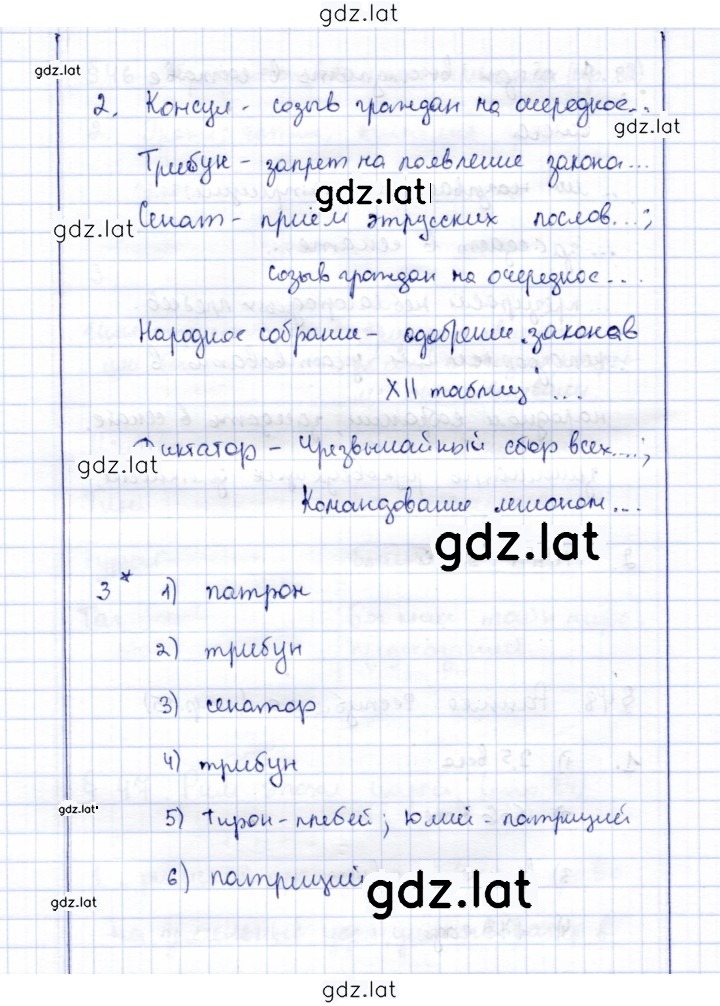 gdz.lat
gdz.lat
2. Консул - созыв граждан на очередное...
gdz.lat
Трибун - запрет на появление закона...
gdz.lat
Сенат - приём этрусских послов...;
gdz.lat
созыв граждан на очередное...
Народное собрание - одобрение законов
XII таблиц...
Диктатор - Чрезвычайный сбор всех...;
gdz.lat
Командование легионом...
gdz.lat
3* 1) патрон
2) трибун
3) сенатор
4) трибун
gdz.lat
5) Тирон - плебей; Юлий - патриций
6) патриций
gdz.lat
gdz.lat
gdz.lat